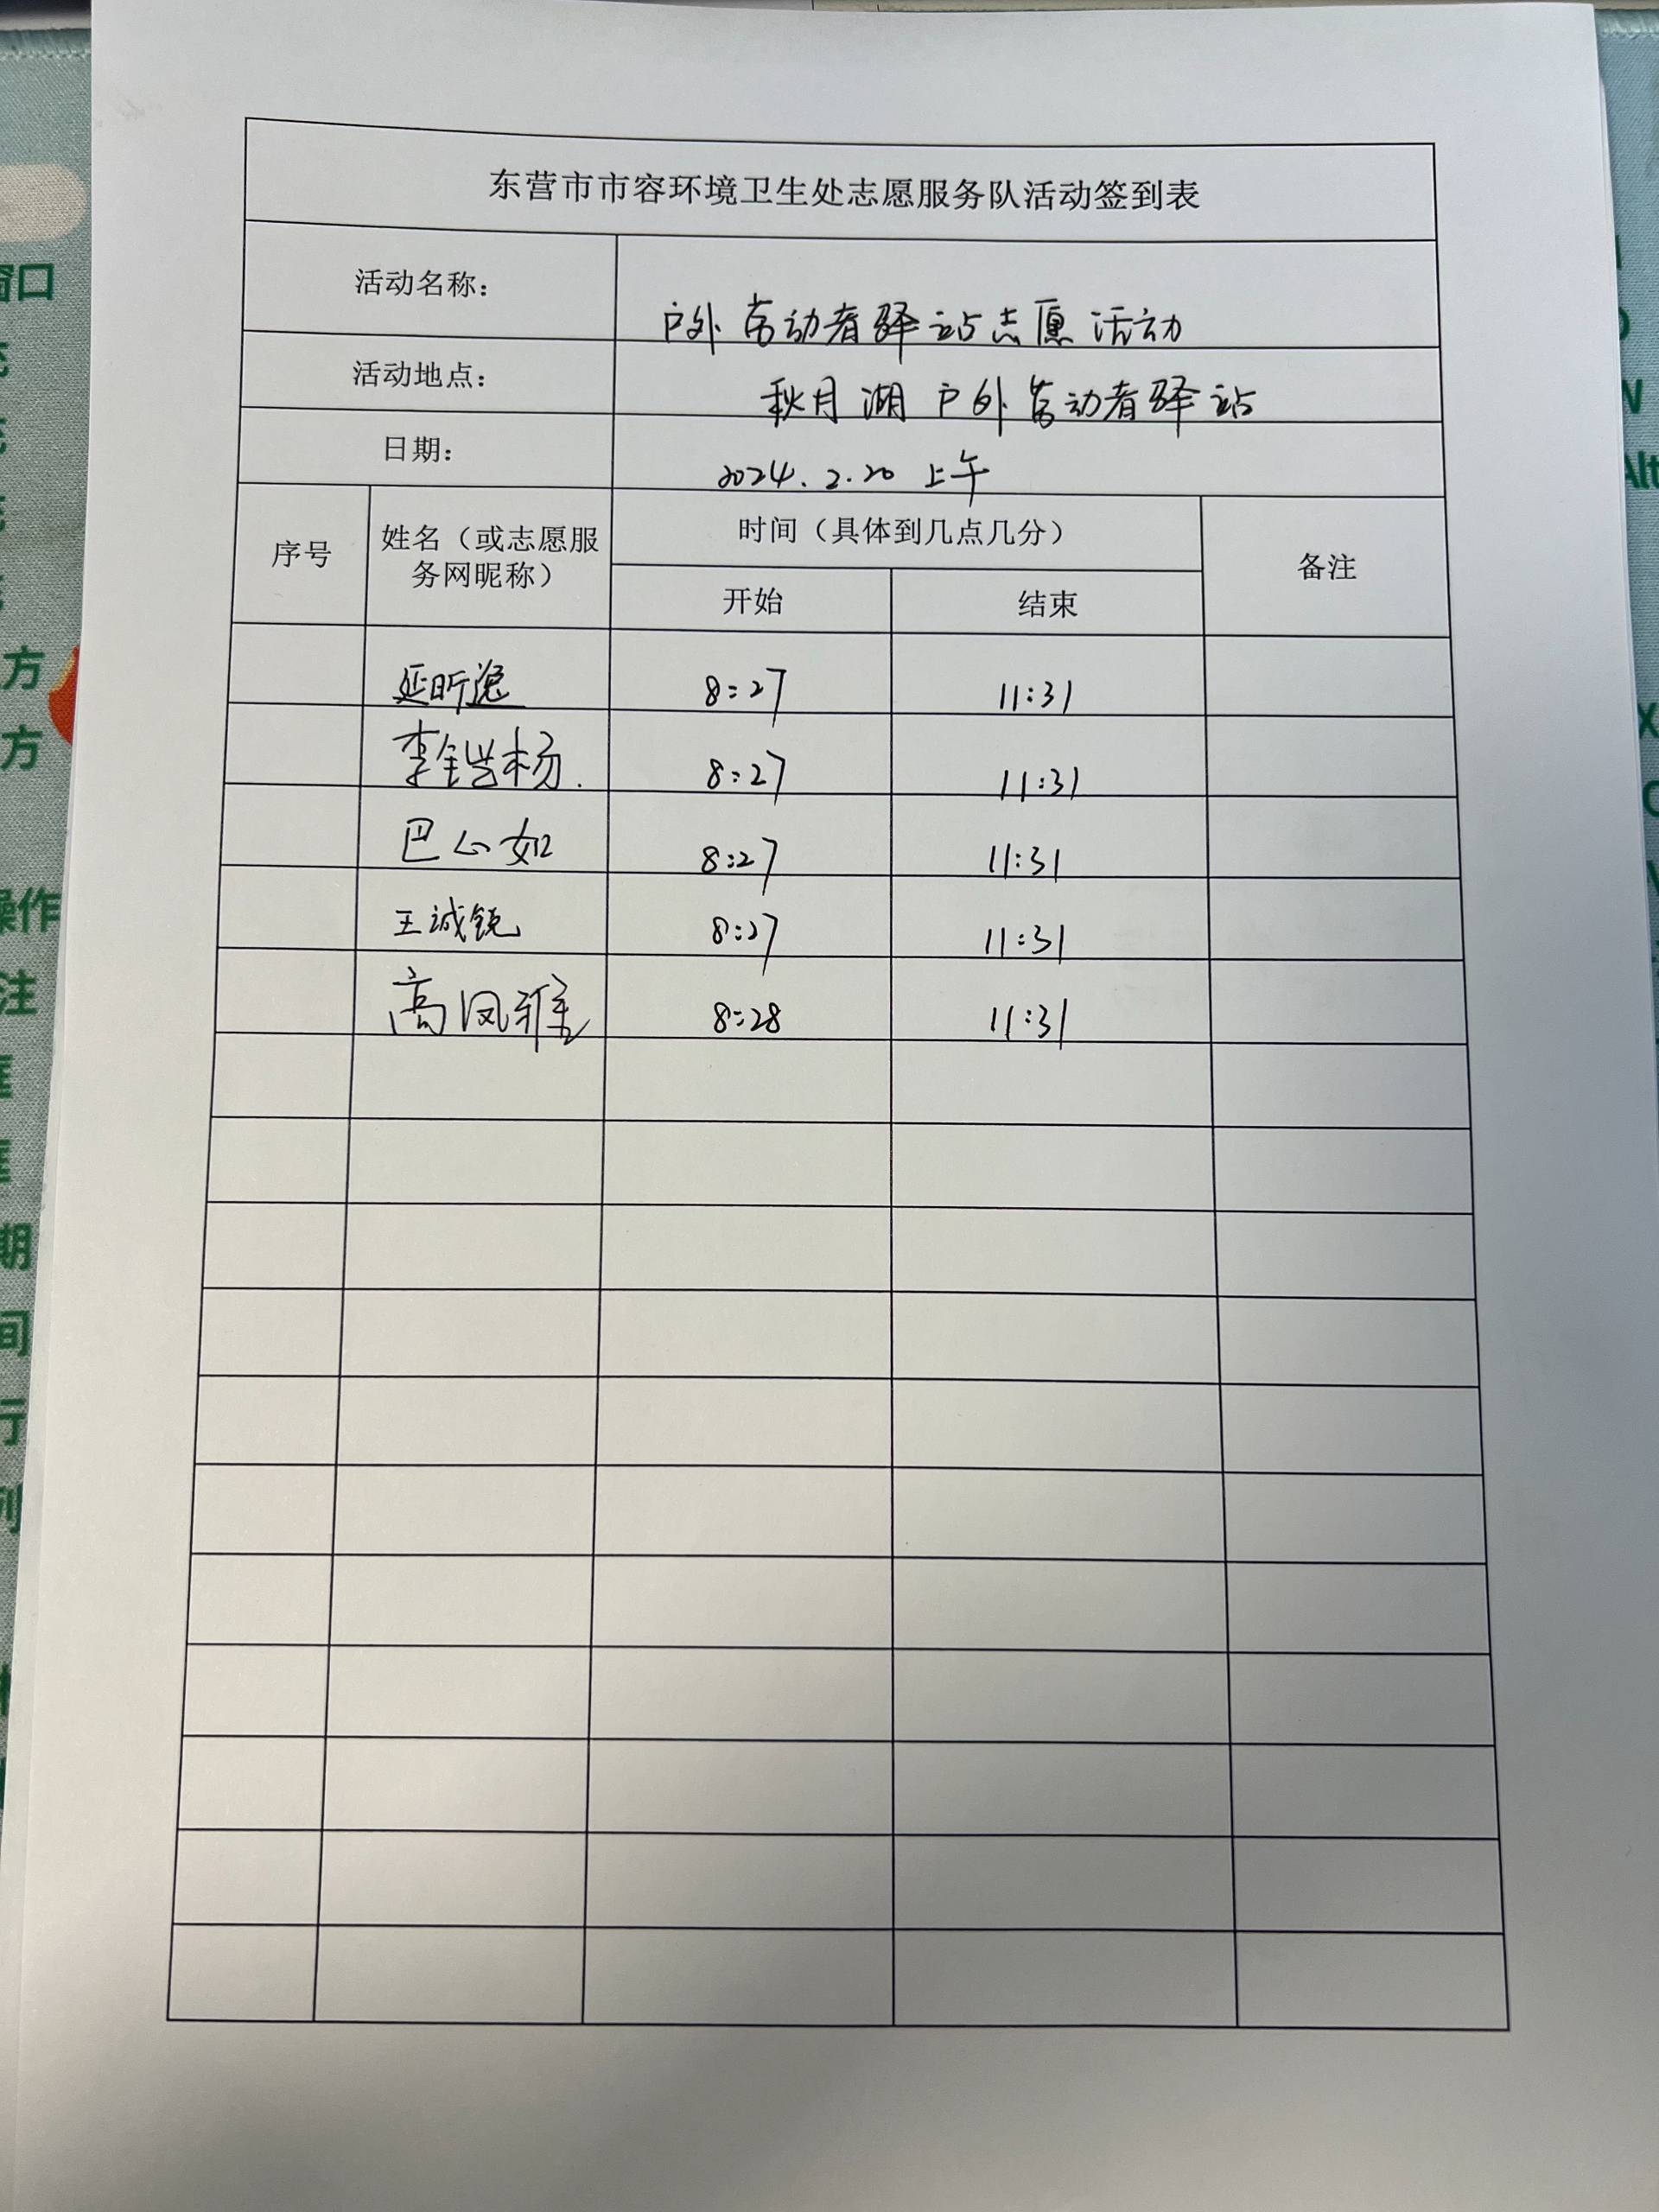 东营市市容环境卫生处志愿服务队活动签到表
活动名称： 户外劳动者驿站志愿活动
活动地点： 秋月湖户外劳动者驿站
日期： 2024.2.20 上午
序号 姓名（或志愿服务网昵称） 时间（具体到几点几分） 备注
开始 结束
延昕 8:27 11:31
李 杨. 8:27 11:31
巴心如 8:27 11:31
王诚锐 8:27 11:31
高凤雅 8:28 11:31
窗口
方
方
操作
注
期
间
行
列
N
Alt
X